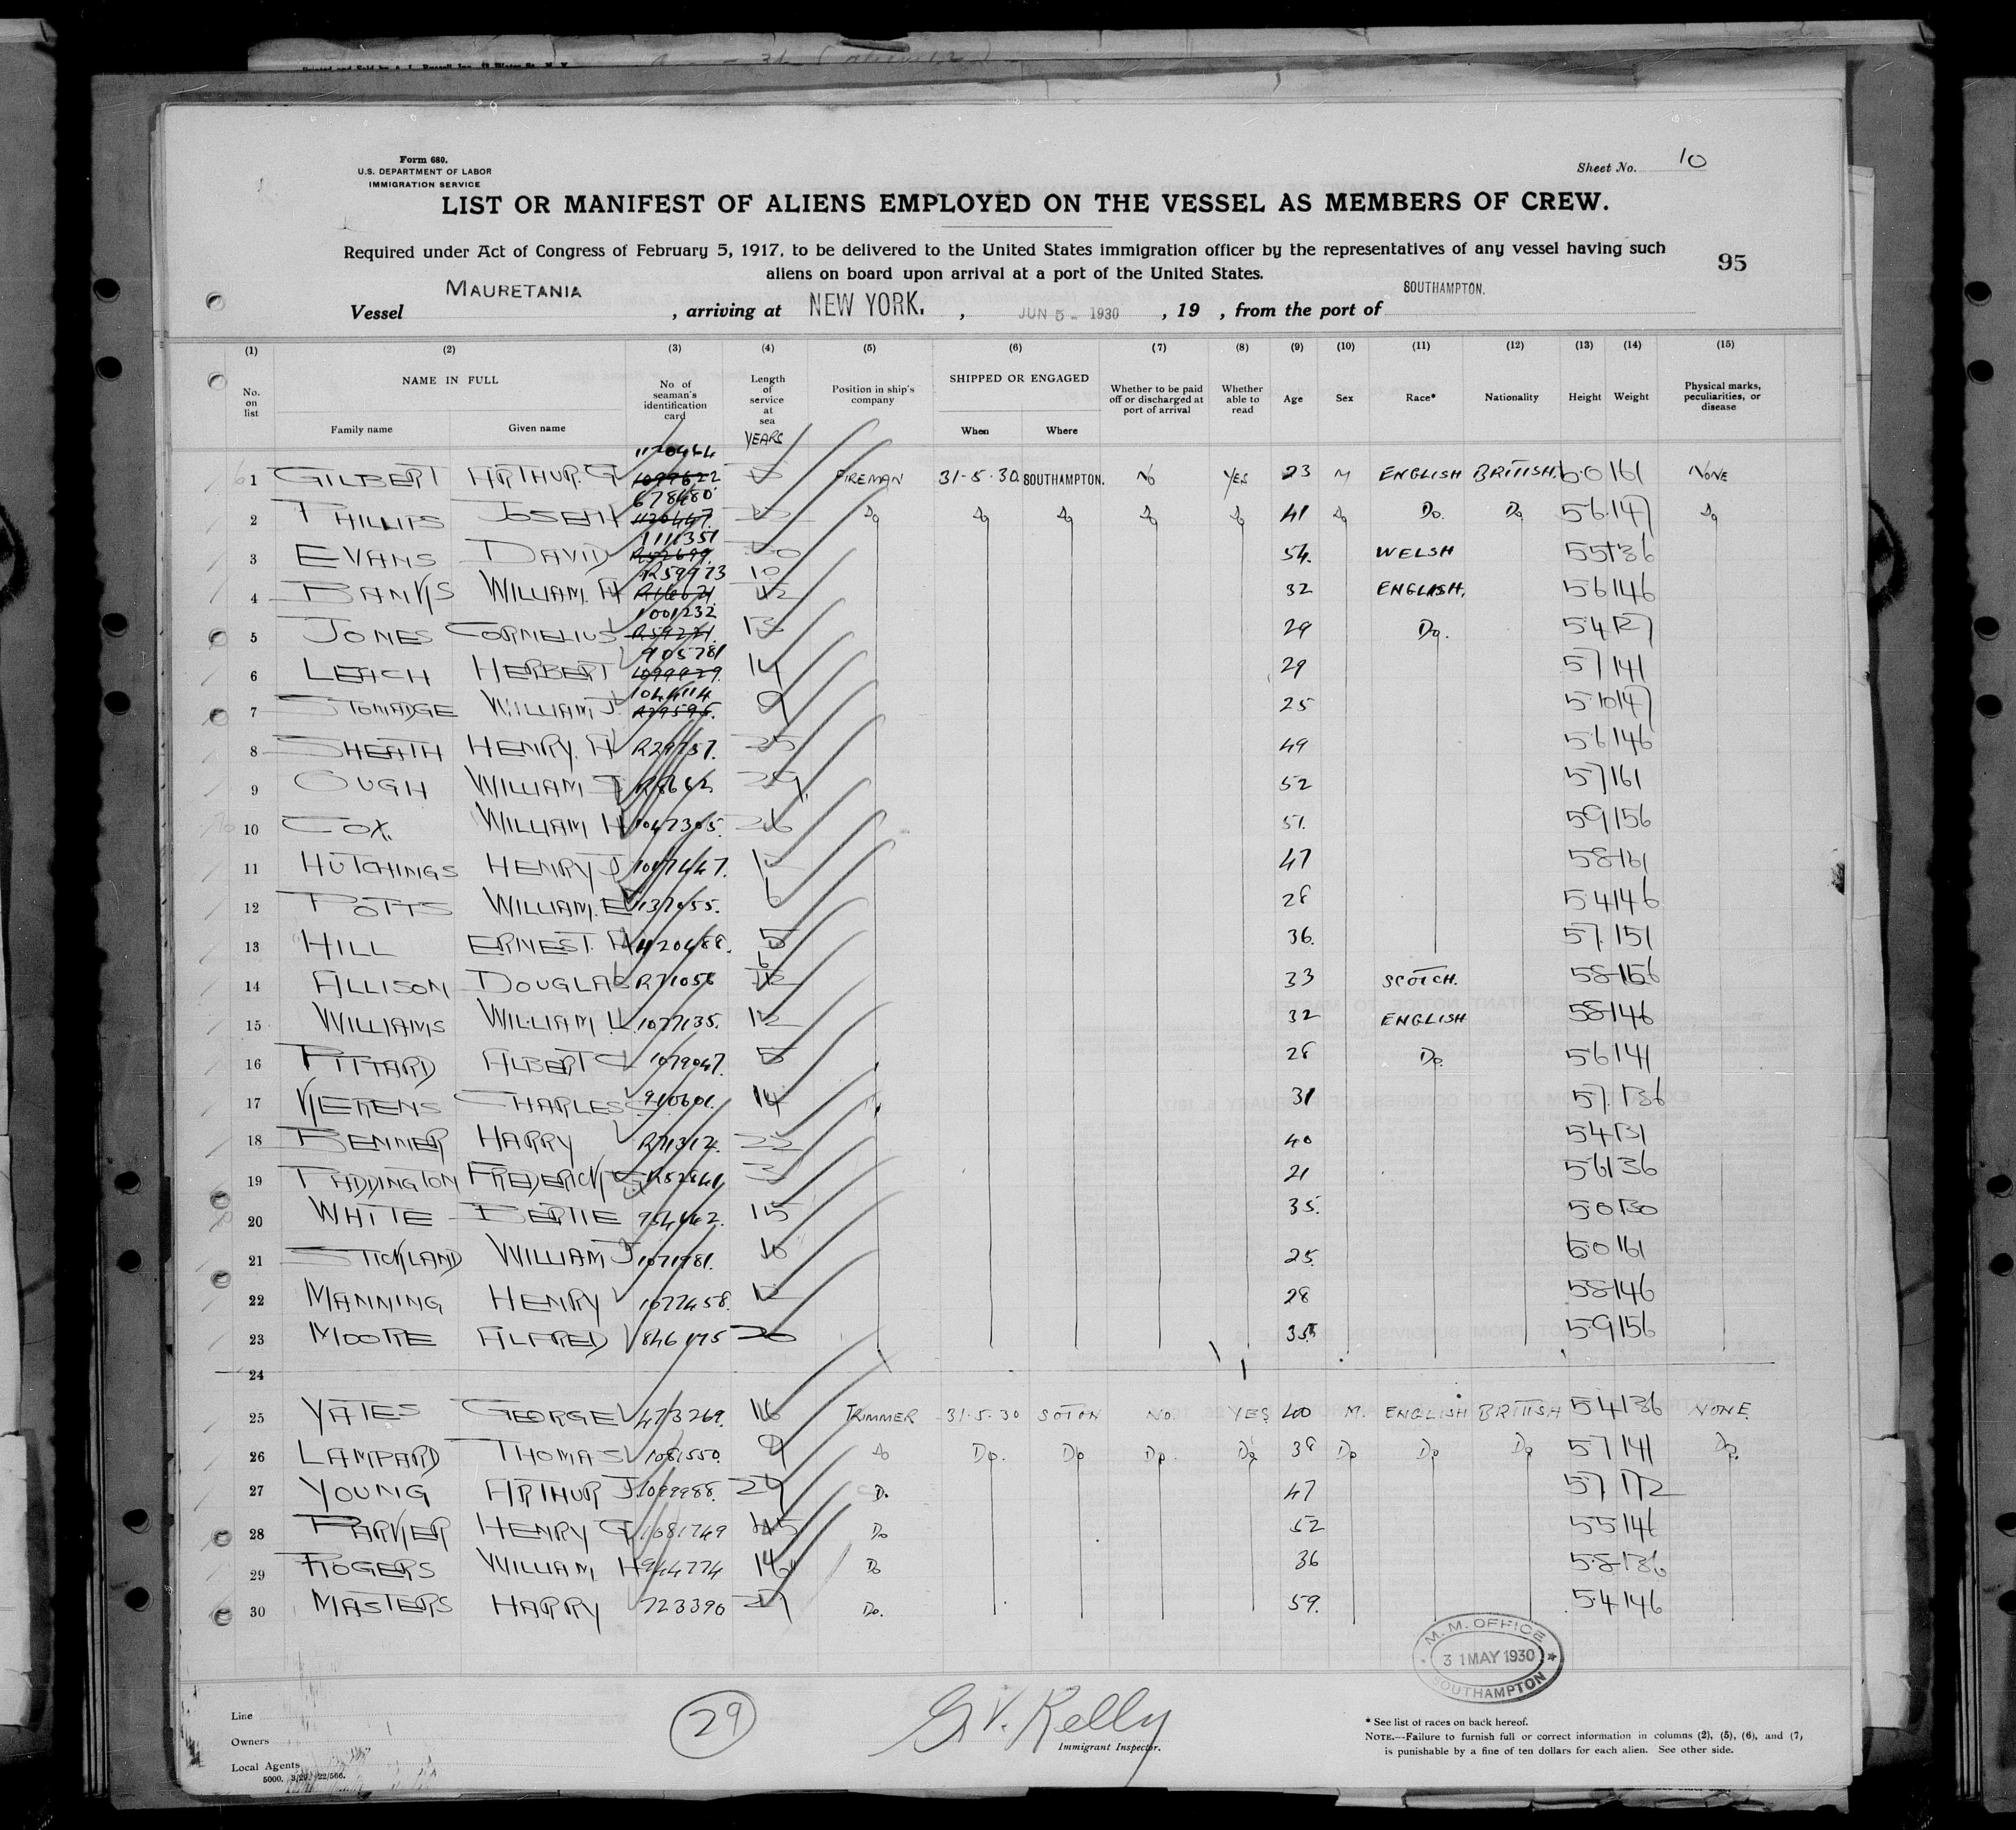 Form 680.
U.S. DEPARTMENT OF LABOR
IMMIGRATION SERVICE
Sheet No. 10
LIST OR MANIFEST OF ALIENS EMPLOYED ON THE VESSEL AS MEMBERS OF CREW.
Required under Act of Congress of February 5, 1917, to be delivered to the United States immigration officer by the representatives of any vessel having such
aliens on board upon arrival at a port of the United States.
95
Vessel MAURETANIA, arriving at NEW YORK., JUN 5 - 1930, 19 , from the port of SOUTHAMPTON.
(1) (2) (3) (4) (5) (6) (7) (8) (9) (10) (11) (12) (13) (14) (15)
No. on list NAME IN FULL Family name Given name No of seaman's identification card Length of service at sea YEARS Position in ship's company SHIPPED OR ENGAGED When Where Whether to be paid off or discharged at port of arrival Whether able to read Age Sex Race* Nationality Height Weight Physical marks, peculiarities, or disease
1120444
1 GILBERT ARTHUR. G 1099622 FIREMAN 31-5-30. SOUTHAMPTON. NO YES 23 M ENGLISH BRITISH. 6.0 161 NONE
678480
2 PHILLIPS JOSEPH 1120447. Do Do Do Do Do 41 Do Do. Do 5 6 147 Do
1111351
3 EVANS DAVID R52699. 30 54. WELSH 5 5 136
R59973 10
4 BANKS WILLIAM. H 12 32 ENGLISH. 5 6 146
1001232
5 JONES CORNELIUS R59271. 13 29 Do. 5 4 127
905781
6 LEACH HERBERT 1099929. 14 29 5 7 141
1044114
7 STOWADGE WILLIAM J. R29595. 9 25 5.10 147
8 SHEATH HENRY. H R29757. 25 49 5 6 146
9 OUGH WILLIAM J R8662 29 52 5 7 161
10 COX. WILLIAM H 1047305. 26 51. 5 9 156
11 HUTCHINGS HENRY J 1017647. 12 47 5 8 161
12 POTTS WILLIAM. E 1137055. 6 28 5 4 146
13 HILL ERNEST. A 1120488. 5 36. 5 7. 151
6
14 ALLISON DOUGLAS R71056 12 33 SCOTCH. 5 8 156
15 WILLIAMS WILLIAM 1077135. 12 32 ENGLISH 5 8 146
16 PITTARD ALBERT C 1079047. 5 28 Do. 5 6 141
17 KERENS CHARLES 910601. 14 31 5 7. 136
18 BENNER HARRY R71312. 22 40 5 4 131
19 PADDINGTON FREDERICK G R52841 3 21 5 6 136
20 WHITE BERTIE 954442. 15 35. 5.0 130
21 STICKLAND WILLIAM J 1071981. 10 25. 6.0 161
22 MANNING HENRY 1077458. 12 28 5 8 146
23 MOORE ALFRED 846175 20 35 5.9 156
24
25 YATES GEORGE 473269. 16 TRIMMER 31.5.30 SOTON NO. YES 40 M. ENGLISH BRITISH 5 4 136 NONE.
26 LAMPARD THOMAS 1081550. 9 Do Do. Do Do. Do 38 Do Do Do 5 7 141 Do.
27 YOUNG ARTHUR J 1099988. 29 Do. 47 5 7 172
28 PARKER HENRY G 1081749 45 Do 52 5 5 146
29 ROGERS WILLIAM H 944774 16 Do 36 5.8 136
30 MASTERS HARRY 723390 29 Do. 59. 5.4 146
M. M. OFFICE
31 MAY 1930
SOUTHAMPTON
Line
Owners
Local Agents
5000. 3/29. 22/566.
29
G. V. Kelly
Immigrant Inspector.
* See list of races on back hereof.
NOTE.—Failure to furnish full or correct information in columns (2), (5), (6), and (7)
is punishable by a fine of ten dollars for each alien. See other side.